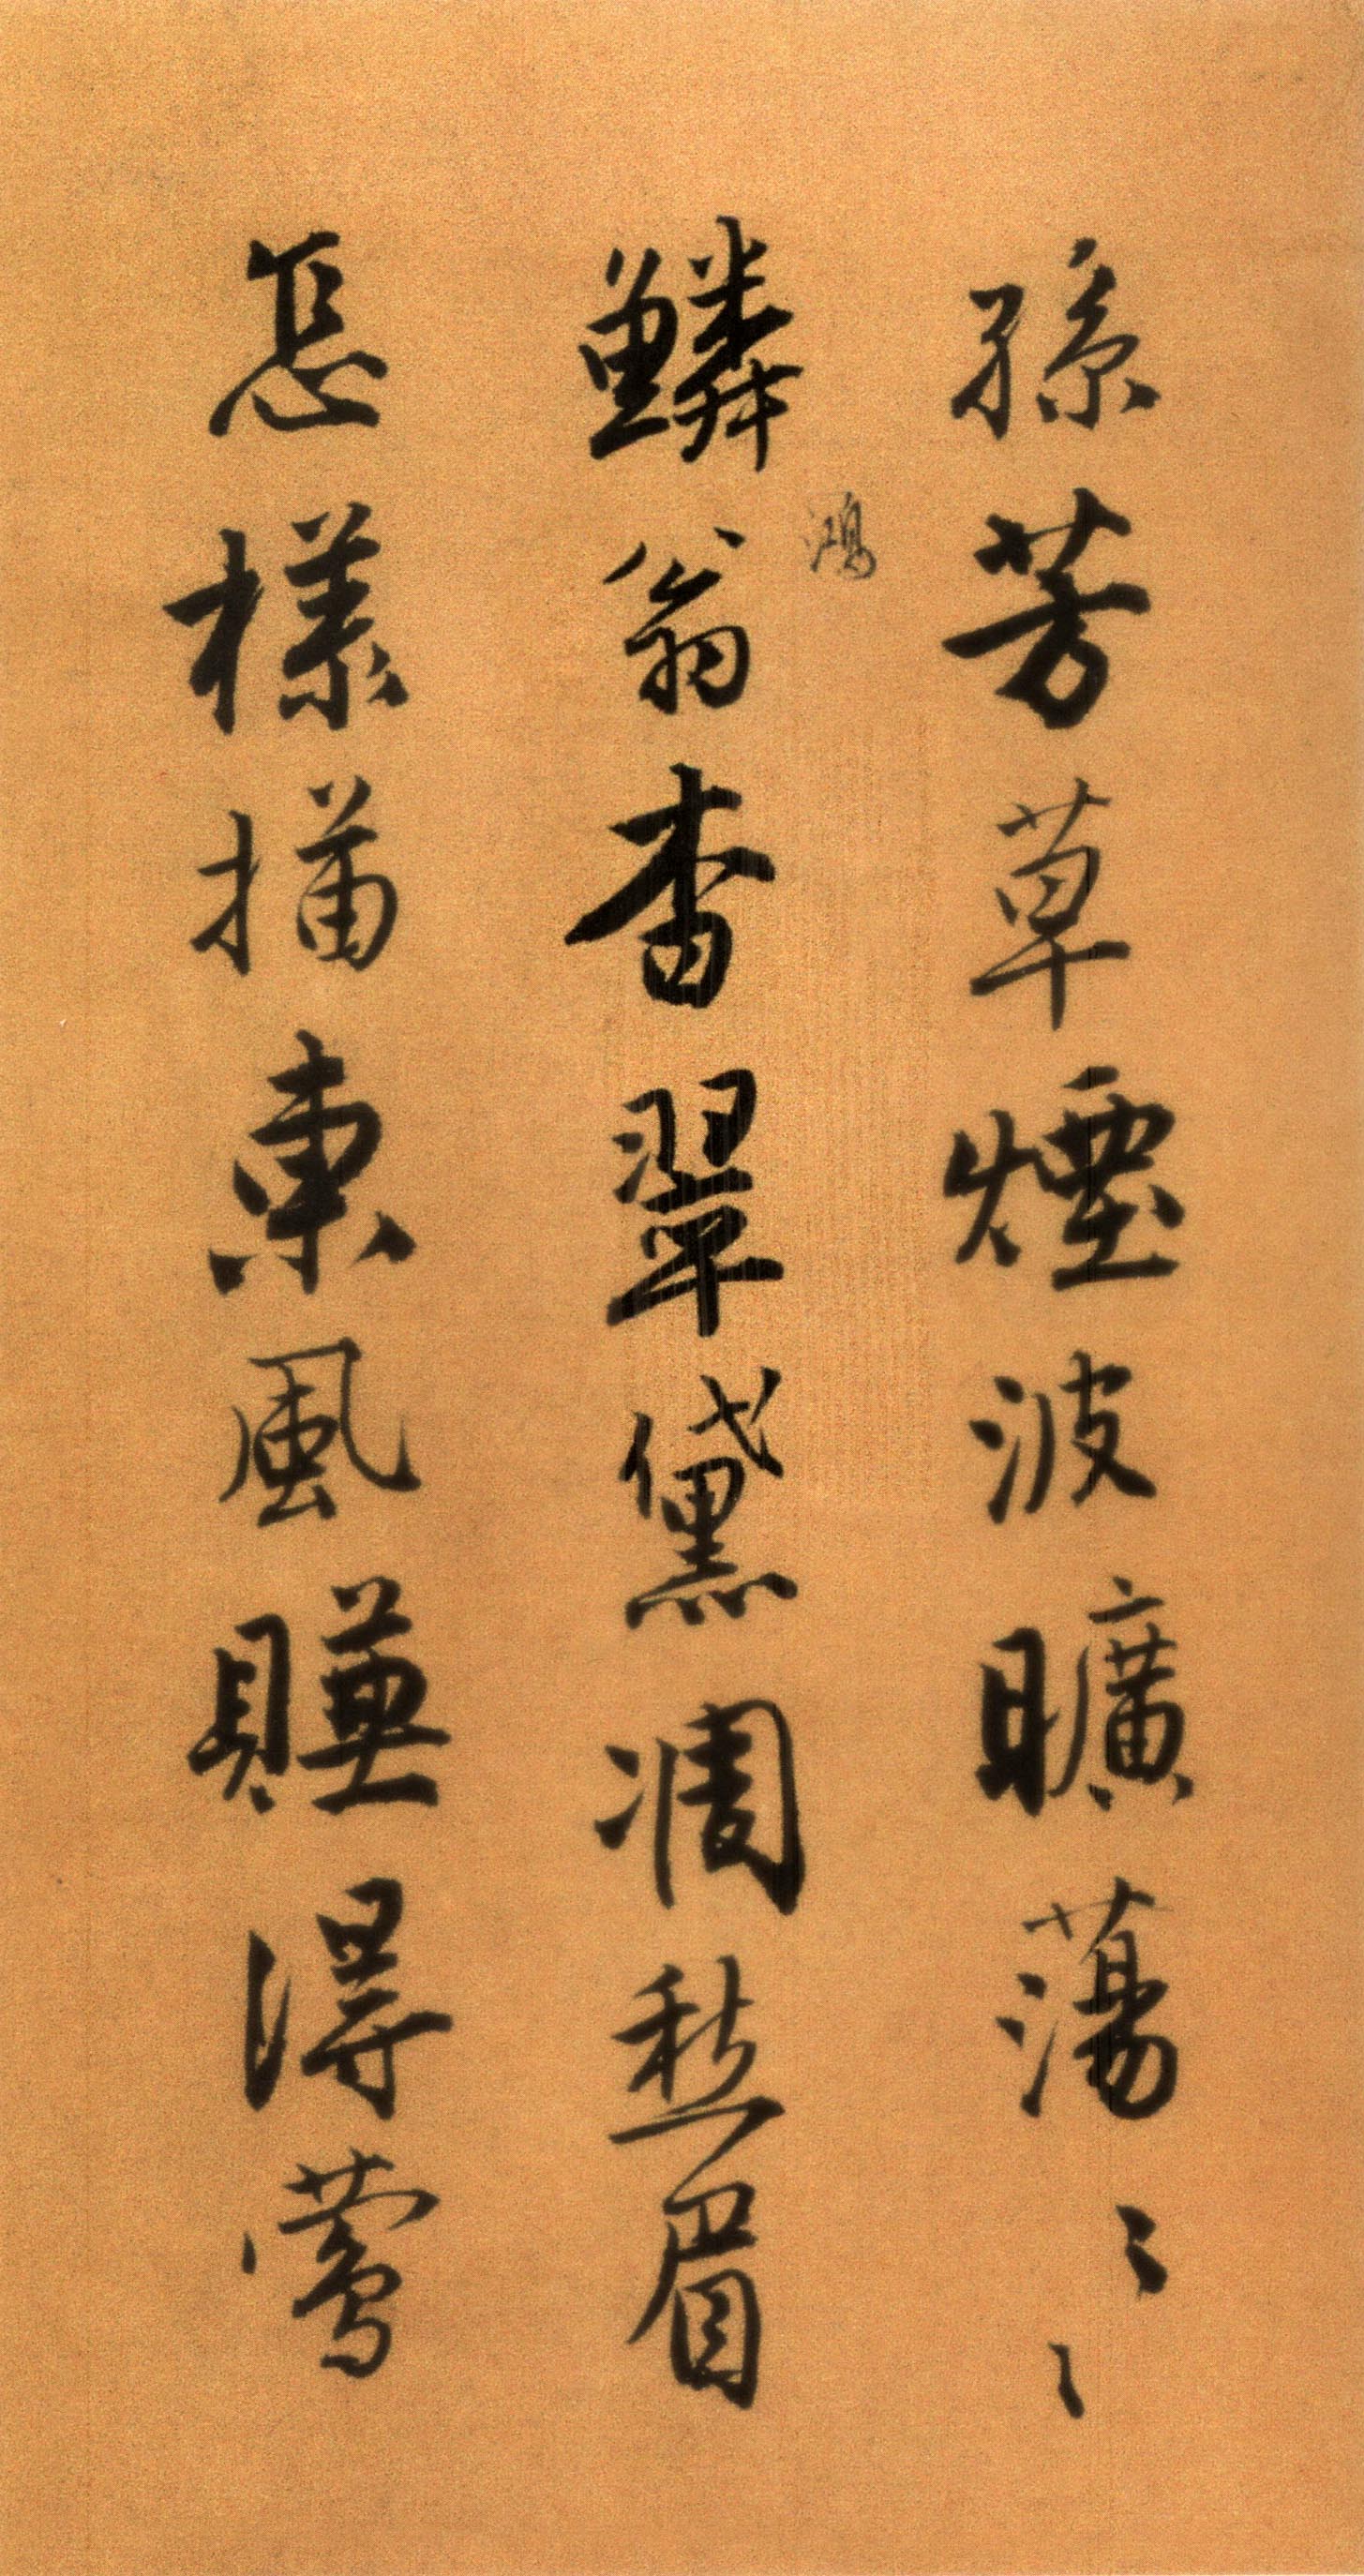 孫芳草煙波曠蕩〻
鴻
鱗翁杳翠黛凋愁眉
怎樣描東風賺得鶯